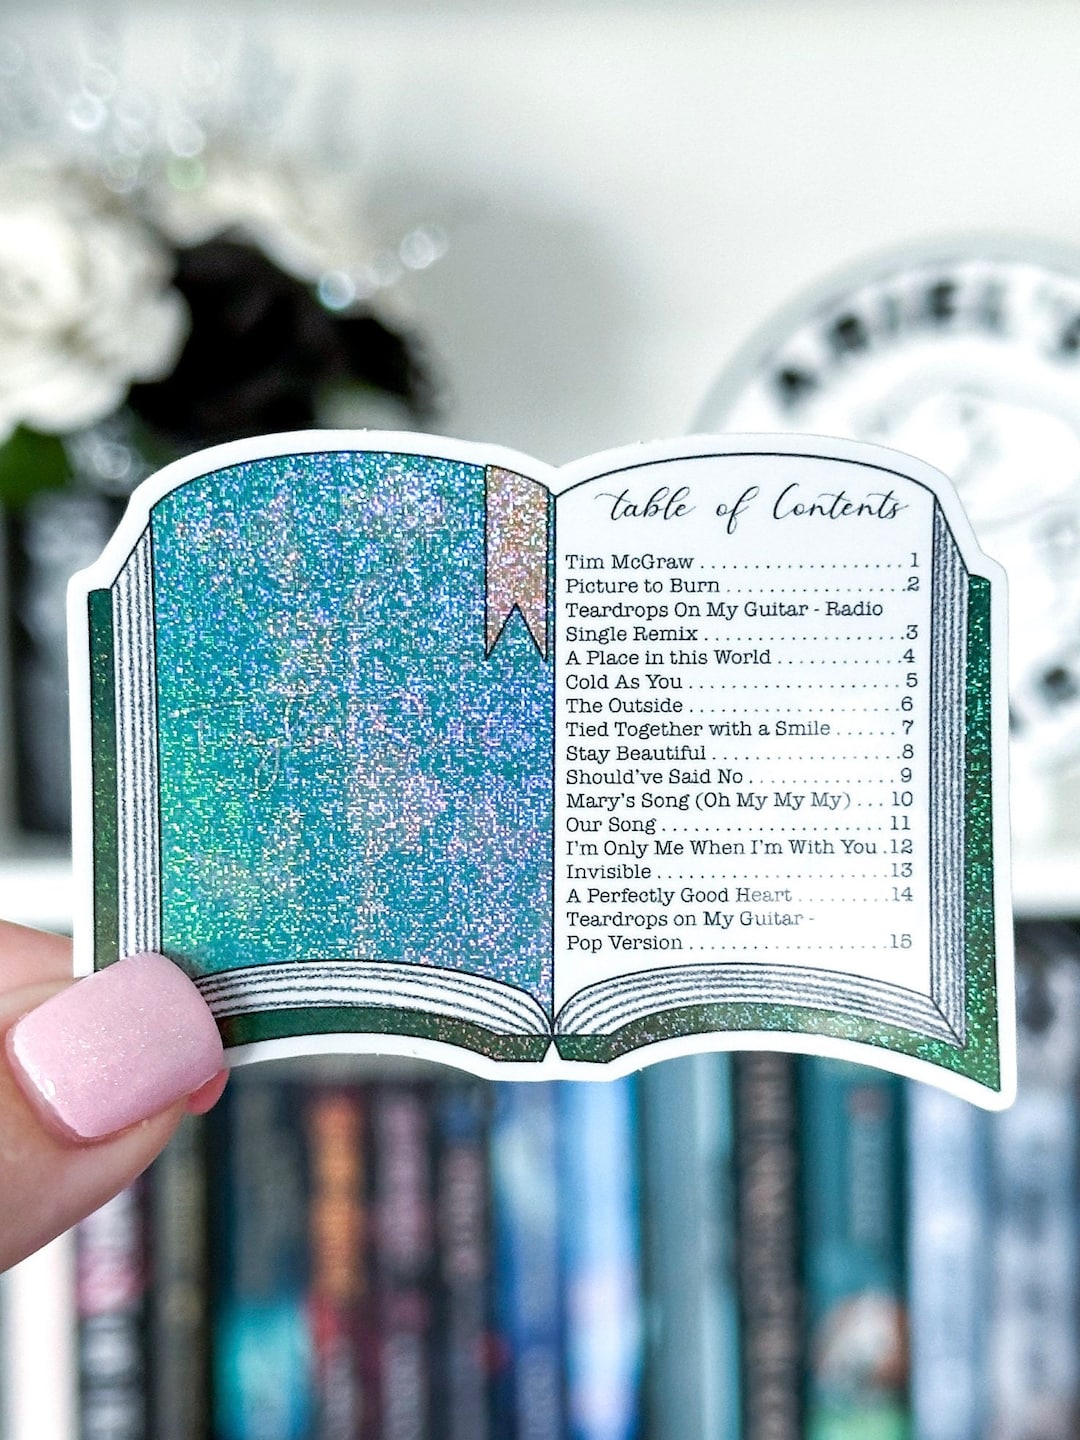 table of Contents
Tim McGraw . . . . . . . . . . . . . . . . . . . . 1
Picture to Burn . . . . . . . . . . . . . . . . . . 2
Teardrops On My Guitar - Radio
Single Remix . . . . . . . . . . . . . . . . . . . . 3
A Place in this World . . . . . . . . . . . . . 4
Cold As You . . . . . . . . . . . . . . . . . . . . . 5
The Outside . . . . . . . . . . . . . . . . . . . . . 6
Tied Together with a Smile . . . . . . . 7
Stay Beautiful . . . . . . . . . . . . . . . . . . . 8
Should've Said No . . . . . . . . . . . . . . . 9
Mary's Song (Oh My My My) . . . 10
Our Song . . . . . . . . . . . . . . . . . . . . . . 11
I'm Only Me When I'm With You . 12
Invisible . . . . . . . . . . . . . . . . . . . . . . . 13
A Perfectly Good Heart . . . . . . . . . 14
Teardrops on My Guitar -
Pop Version . . . . . . . . . . . . . . . . . . . 15